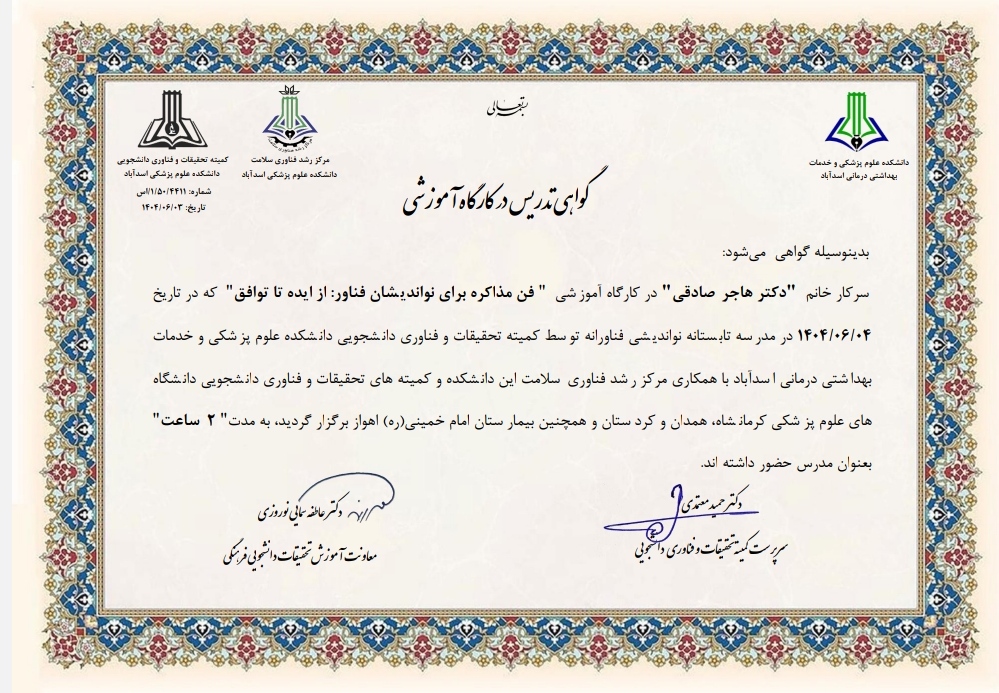 بسمه تعالی
دانشکده علوم پزشکی و خدمات
بهداشتی درمانی اسدآباد
مرکز رشد فناوری سلامت
دانشکده علوم پزشکی اسدآباد
کمیته تحقیقات و فناوری دانشجویی
دانشکده علوم پزشکی اسدآباد
شماره: ۱/۵۰/۴۴۱۱/اس
تاریخ: ۱۴۰۴/۰۶/۰۳
گواهی تدریس در کارگاه آموزشی
بدینوسیله گواهی می‌شود:
سرکار خانم "دکتر هاجر صادقی" در کارگاه آموزشی " فن مذاکره برای نواندیشان فناور: از ایده تا توافق" که در تاریخ
۱۴۰۴/۰۶/۰۴ در مدرسه تابستانه نواندیشی فناورانه توسط کمیته تحقیقات و فناوری دانشجویی دانشکده علوم پزشکی و خدمات
بهداشتی درمانی اسدآباد با همکاری مرکز رشد فناوری سلامت این دانشکده و کمیته های تحقیقات و فناوری دانشجویی دانشگاه
های علوم پزشکی کرمانشاه، همدان و کردستان و همچنین بیمارستان امام خمینی(ره) اهواز برگزار گردید، به مدت" ۲ ساعت"
بعنوان مدرس حضور داشته اند.
دکتر حمید معتمدی
سرپرست کمیته تحقیقات و فناوری دانشجویی
دکتر عاطفه سمائی نوروزی
معاونت آموزش تحقیقات دانشجویی فرهنگی